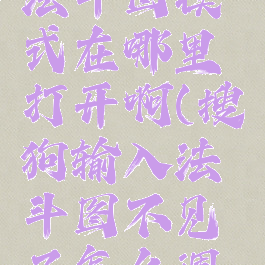 法斗图模
式在哪里
打开啊(搜
狗输入法
斗图不见
了怎么调